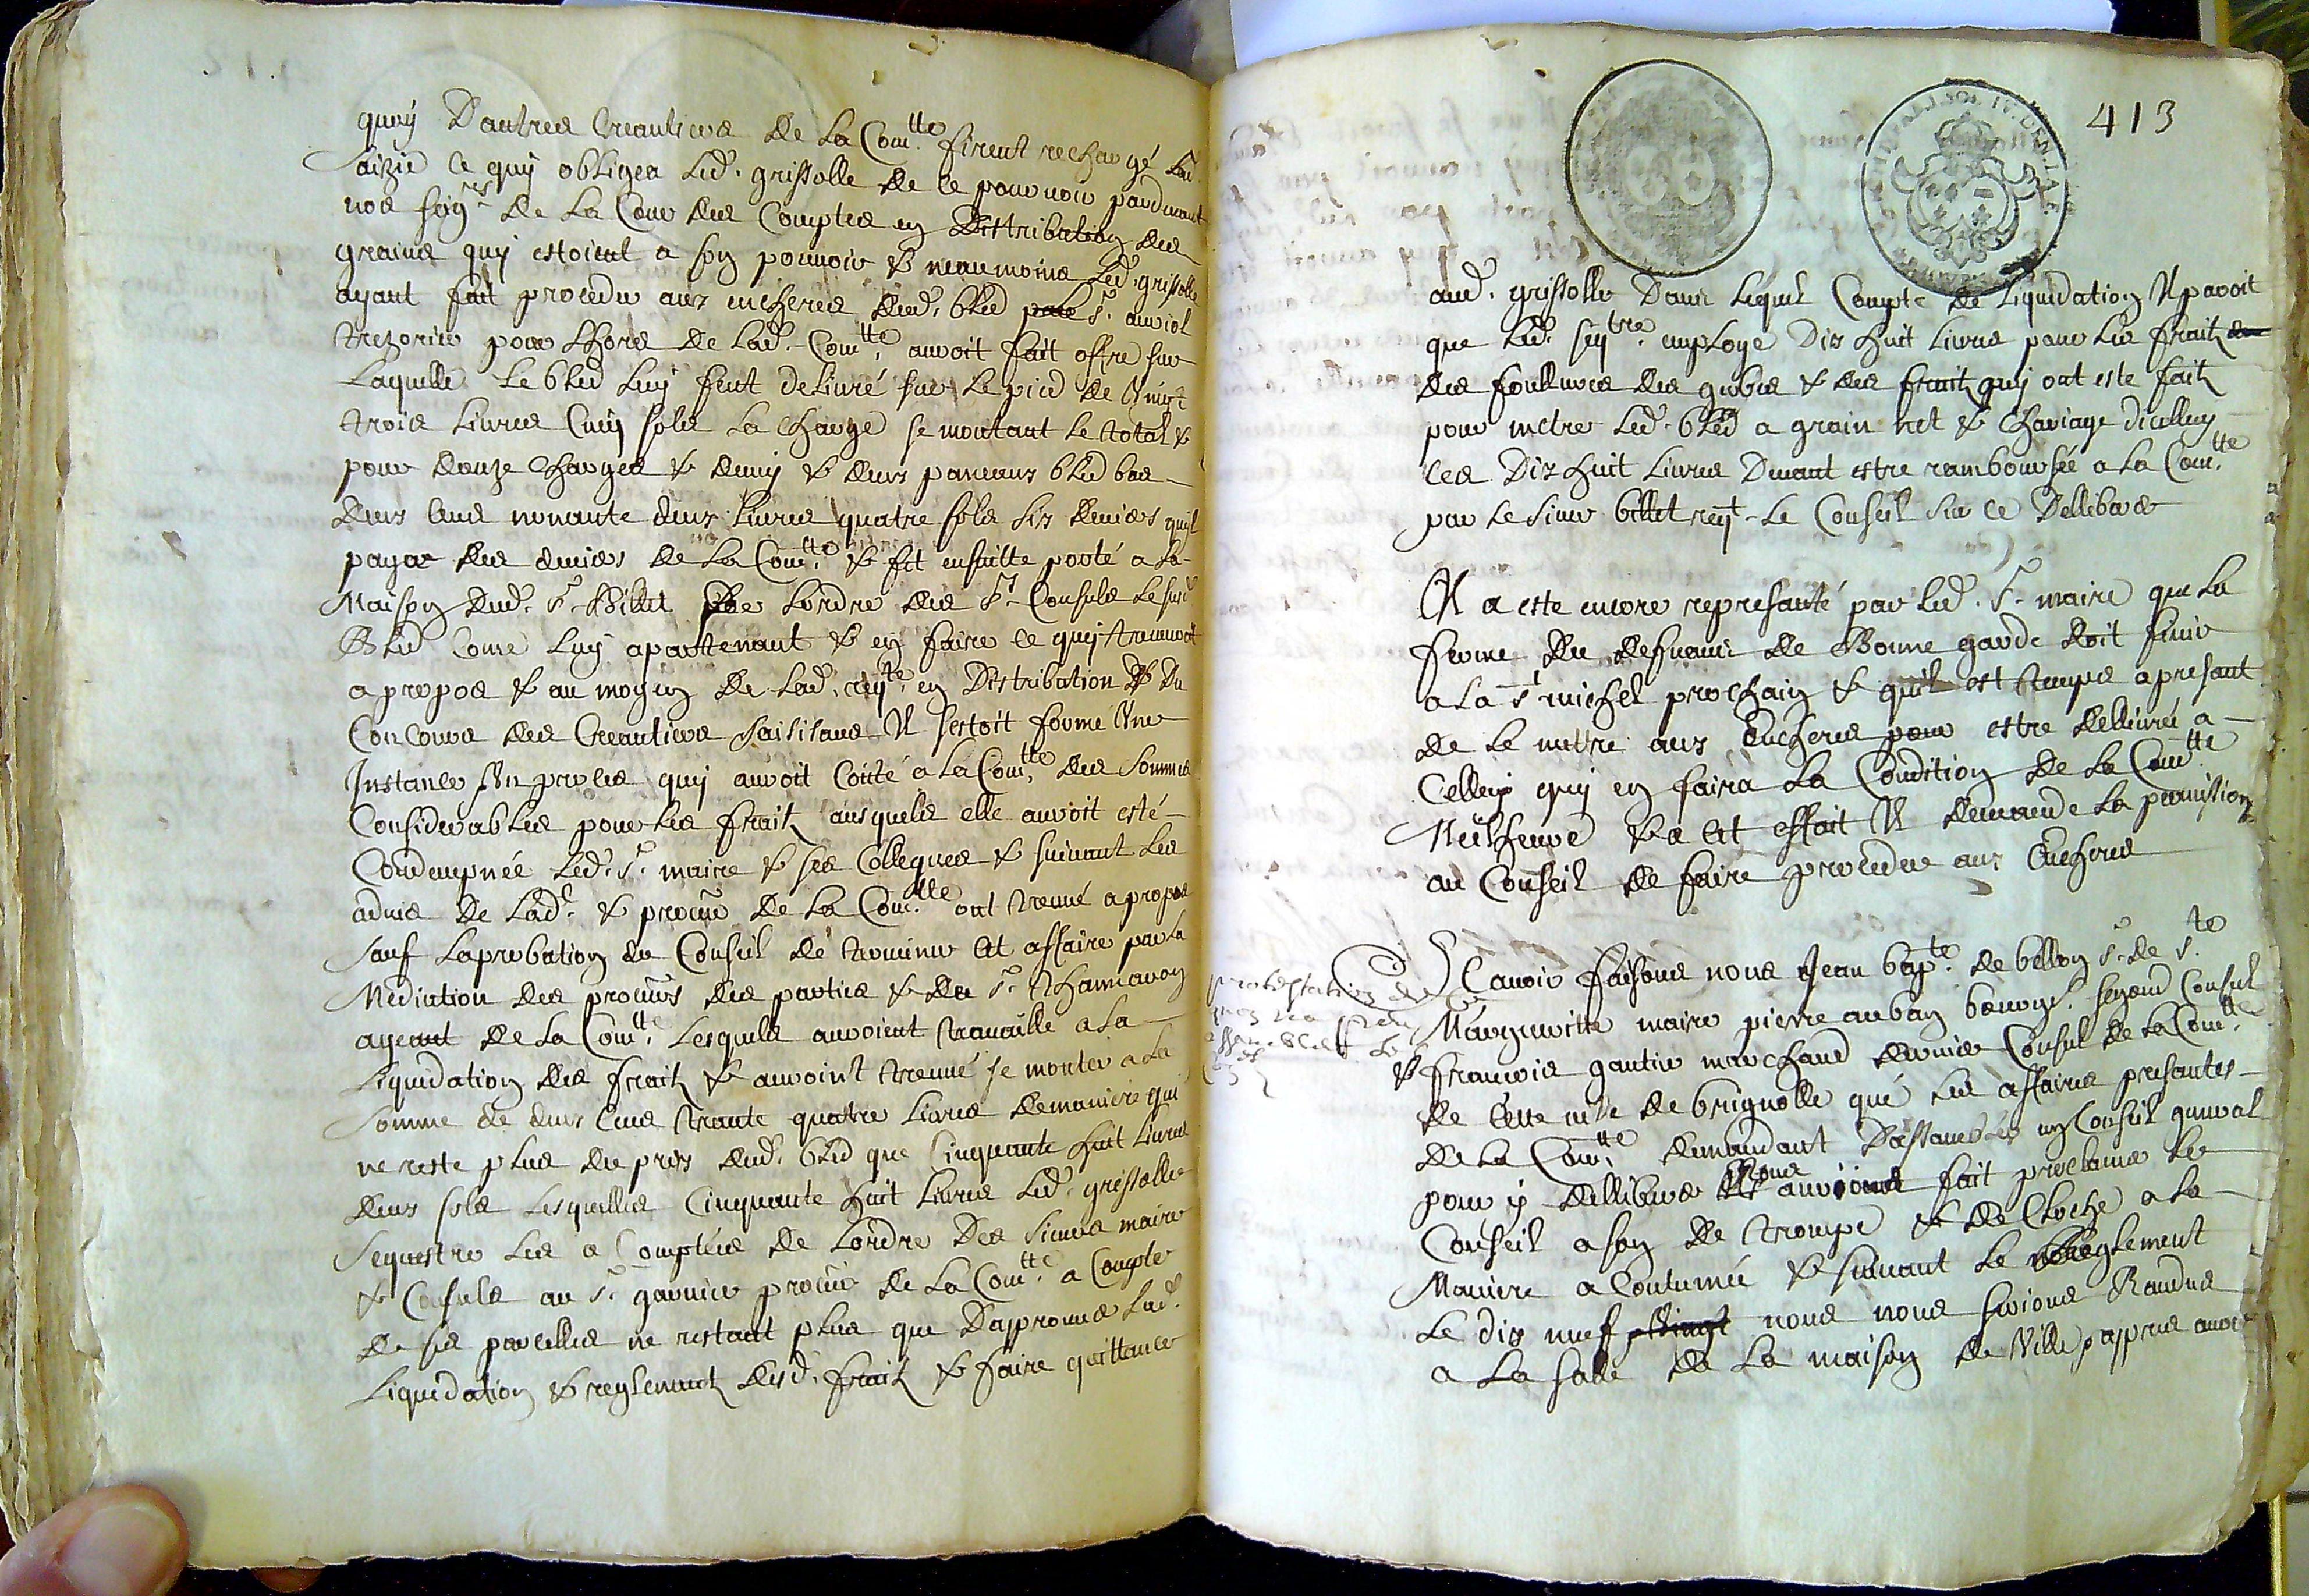 quoy Dautres Creantiers de La Com.tte firent recharge Lad.
Saizie Ce quy obligea Led. grissolle de ce pourvoir pardevant
nos seig.rs de La Cour des Comptes en Distribution des
grains quy estoient a son pouvoir & neanmoins Led. grissolle
ayant fait proceder aux encheres dud. bled s.r auriol
trezorier pour Lhors de Lad. Com.tte auroit fait offre sur
Laquelle Le bled Luy feut deLivré sur Le pied de Vingt
trois Livres Cinq sols La Charge se montant Le total
pour douze charges & demy & deux panaux bled bas
deux Cens nonante deux Livres quatre sols six deniers quil
payat des deniers de La Com.tte & fit ensuitte porté a La
Maison dud. s.r Billet Par Lordre des s.rs Consuls Le susd.
Bled Come Luy apartenant & en faire Ce quy trouveroit
a propos & au moyen de Lad. req.te en Distribution & Du
Concours des Creantiers saisisans Il sestoit formé Une
Instance Un procés quy auroit Coutté a La Com.tte des Sommes
Considerables pour Les fraitz ausquels elle auroit esté
Condempnée Led. s.r maire & ses Collegues & suivant Les
advis de Lad.e & procur de La Com.tte ont treuvé a propos
sauf Laprobation du Conseil de terminer Cet affaire par La
Mediation des procurs des parties & du s.r
ageant de La Com.tte Lesquels auroient travaillé a La
Liquidation des fraitz & auroint treuvé se monter a La
Somme de deux Cens trante quatre Livres demaniere qui
ne reste plus du prix dud. bled que Cinquante huit Livres
deux sols Lesquelles Cinquante huit Livres Led. grissolle
Sequestre Les a Comptées de Lordre Des sieurs maire
& Consuls au s.r garnier procur de La Com.tte a Compte
de ses parcelles ne restant plus que Daprouver Lad.
Liquidation & reglemant desd. fraitz & faire quittance
413
aud. grissolle Dans Lequel Compte de Liquidation Il paroit
que Led. seq.tre employe Dix huit Livres pour Les fraitz
des foulleures des gerbes & des fraitz quy ont este faitz
pour metre Led. bled a grain net & Chariage dicelluy
Ces Dix huit Livres Devant estre rambourcée a La Com.tte
par Le sieur billet req.t Le Conseil sur ce Delliberer
Il a este encore represanté par Led. s.r maire que La
ferme du deffrans de Bonne garde doit finir
a La s.t michel prochain & quil est temps a presant
de Le mettre aux Encheres pour estre dellivrée a
Celluy quy en faira La Condition de La Com.tte
Meilheure & a Cet effait Il demande La permission
au Conseil de faire proceder aux Encheres
Scavoir faisons nous Jean bap.te de bellon s.r de s.te
Margueritte maire pierre auban bourgs. segond Consul
& francois gautier marchand dernier Consul de La Com.tte
de Cette ville de brignolle que Les affaires presantes
de La Com.tte demandant Dassambler un Conseil general
pour y delliberer Nous aurions fait proclamer Le
Conseil a son de trompe & de Cloche a La
Maniere acoutumée & suivant Le Reglement
Le dix neuf nous nous serions Randus
a La salle de La maison de Ville appres avoir